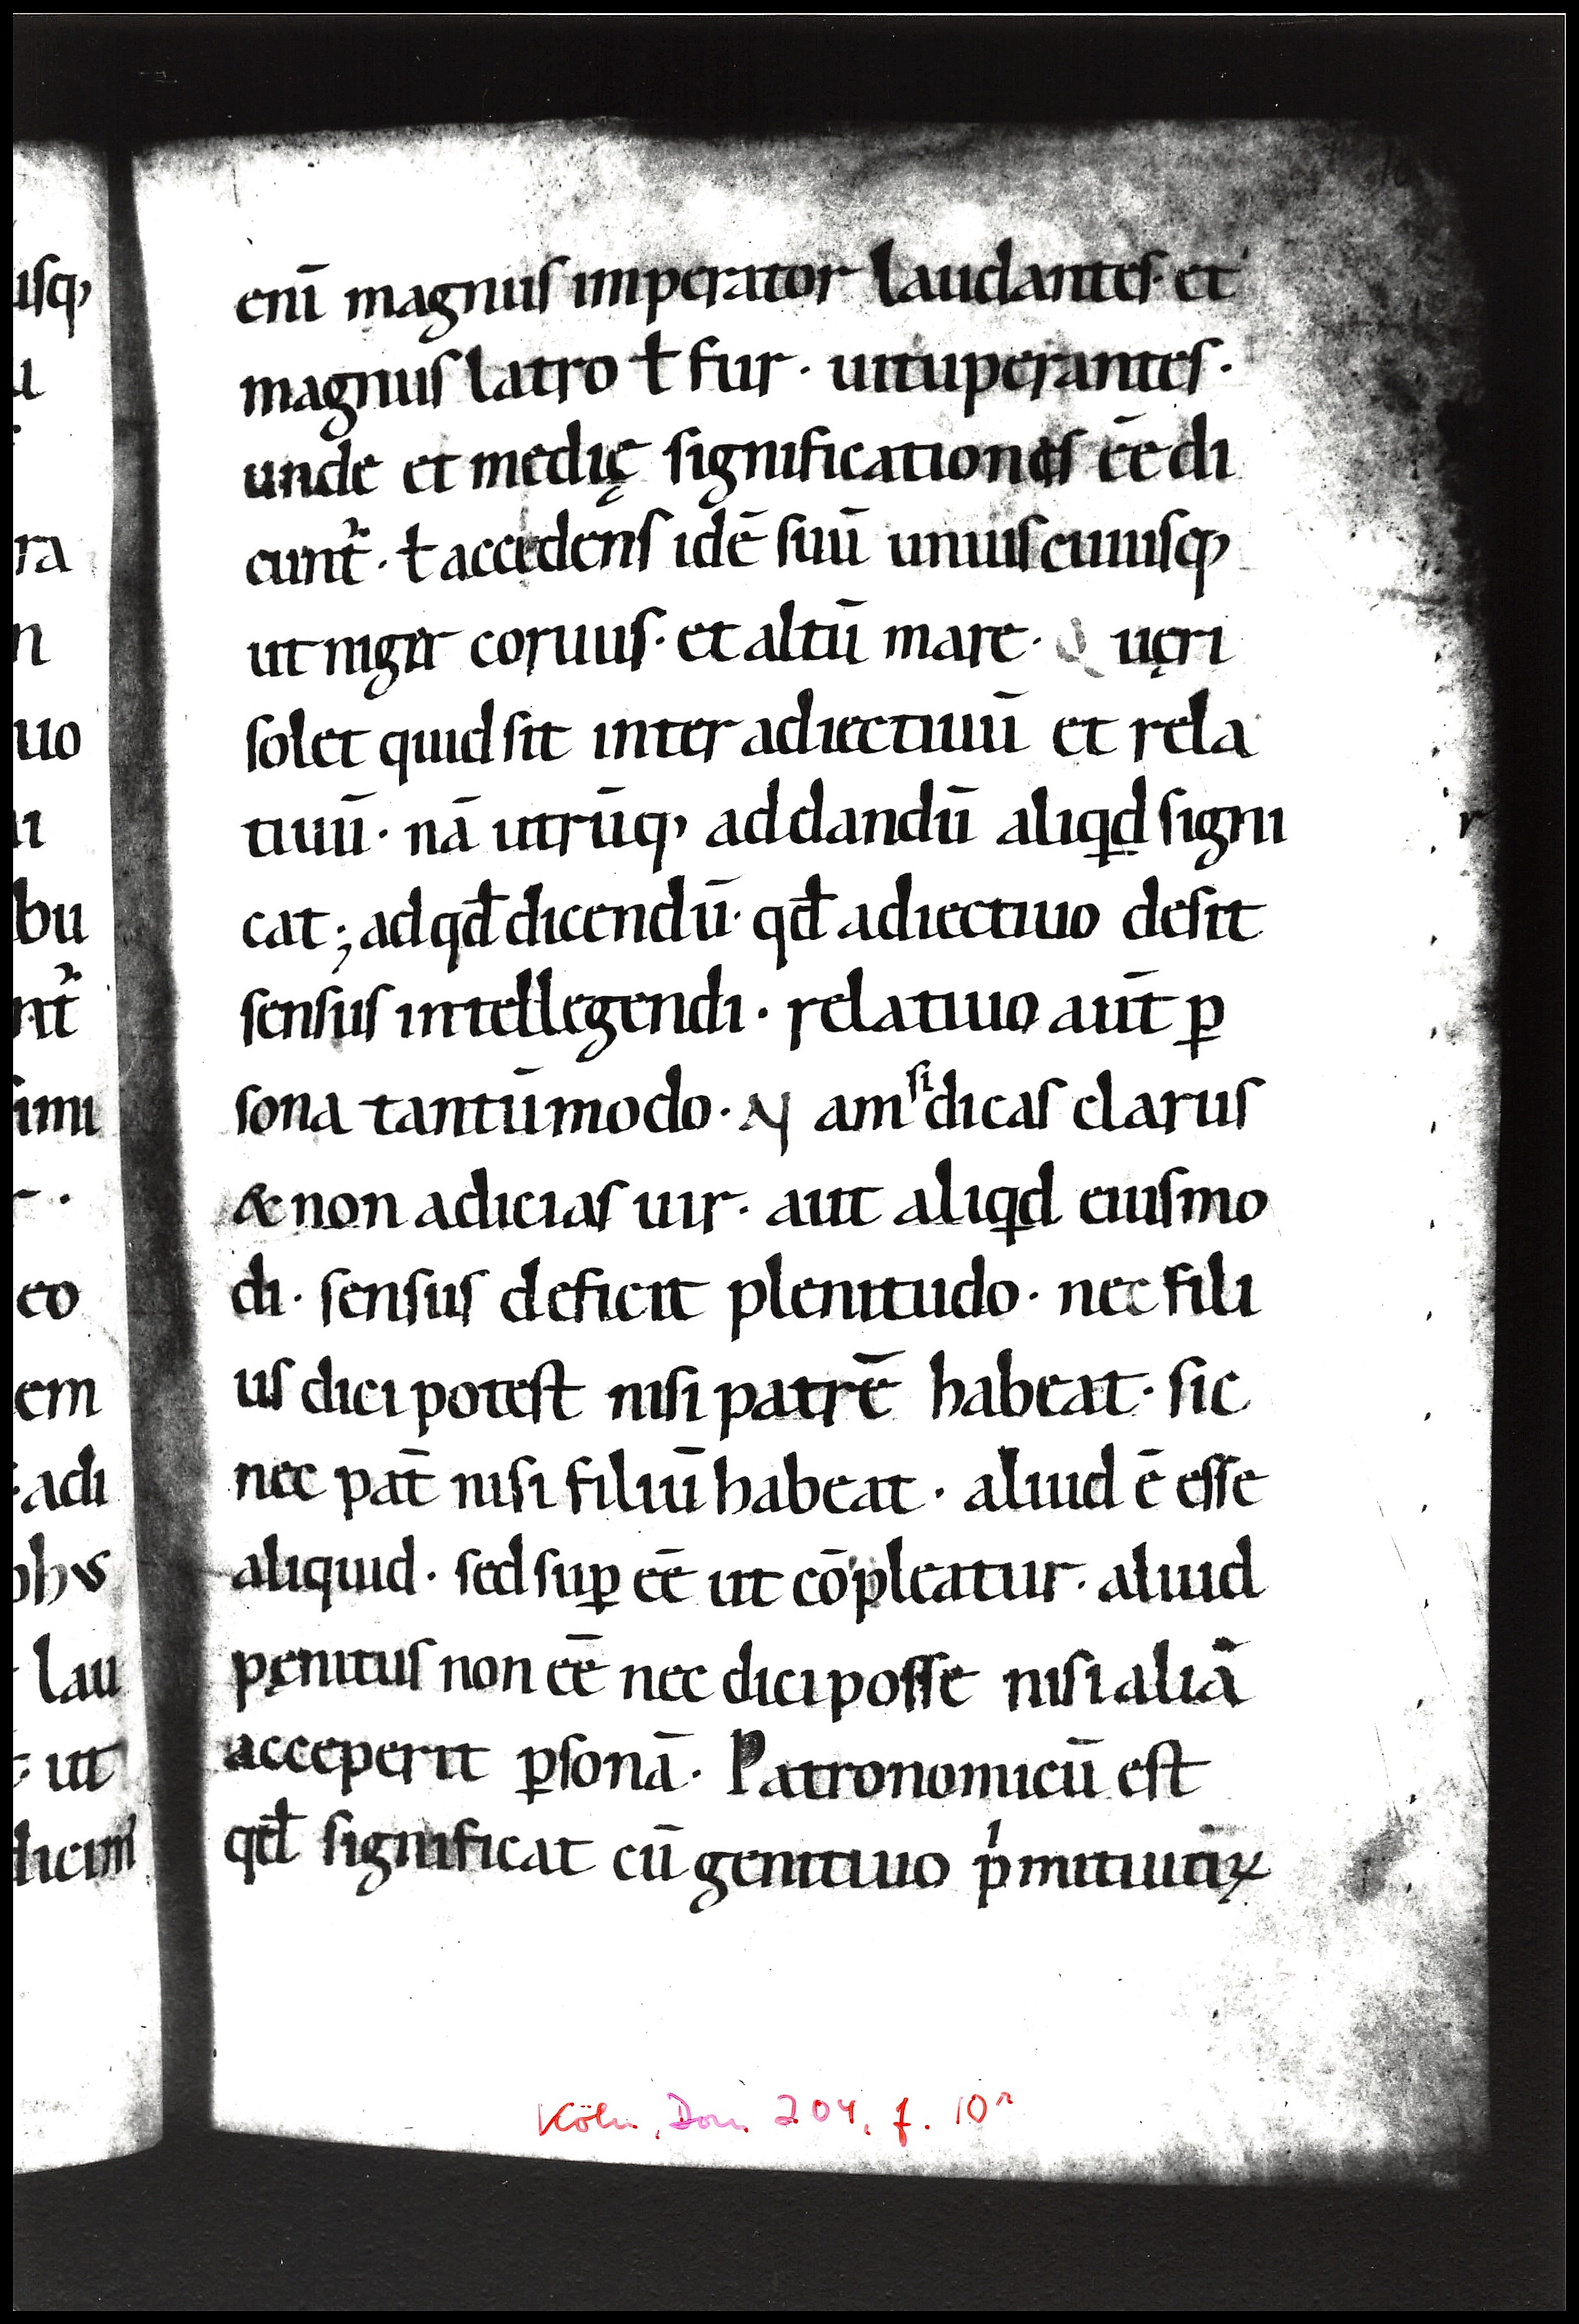 enī magnus imperator laudantes· et
magnus latro ł fur · uituperantes ·
unde et medię significationis ēe di
cunt᷑ · ł accidens idē suū uniuscuiusq,
ut niger coruus · et altū mare · Quęri
solet quid sit inter adiectiuū et rela
tiuū · nā utrūq, addandū aliqd signi
cat ; ad qđ dicendū · qđ adiectiuo desit
sensus intellegendi · relatiuo aut̄ ꝑ
sona tantūmodo · Nam si dicas clarus
& non adicias uir · aut aliqd eiusmo
di · sensus deficit plenitudo · nec fili
us dici potest nisi patrē habeat · sic
nec pat̄ nisi filiū habeat · aliud ē esse
aliquid · sed suꝑ ēe ut cōpleatur · aliud
pęnitus non ēe nec dici posse nisi aliā
acceperit ꝑsonā · Patronomicū est
qđ significat cū genitiuo pͥmitiuūꝝ
usq,
u
ra
n
uo
bu
nt᷑
simi
eo
em
·adi
lau
ut
dicim'
Köln, Dom 204, f. 10r